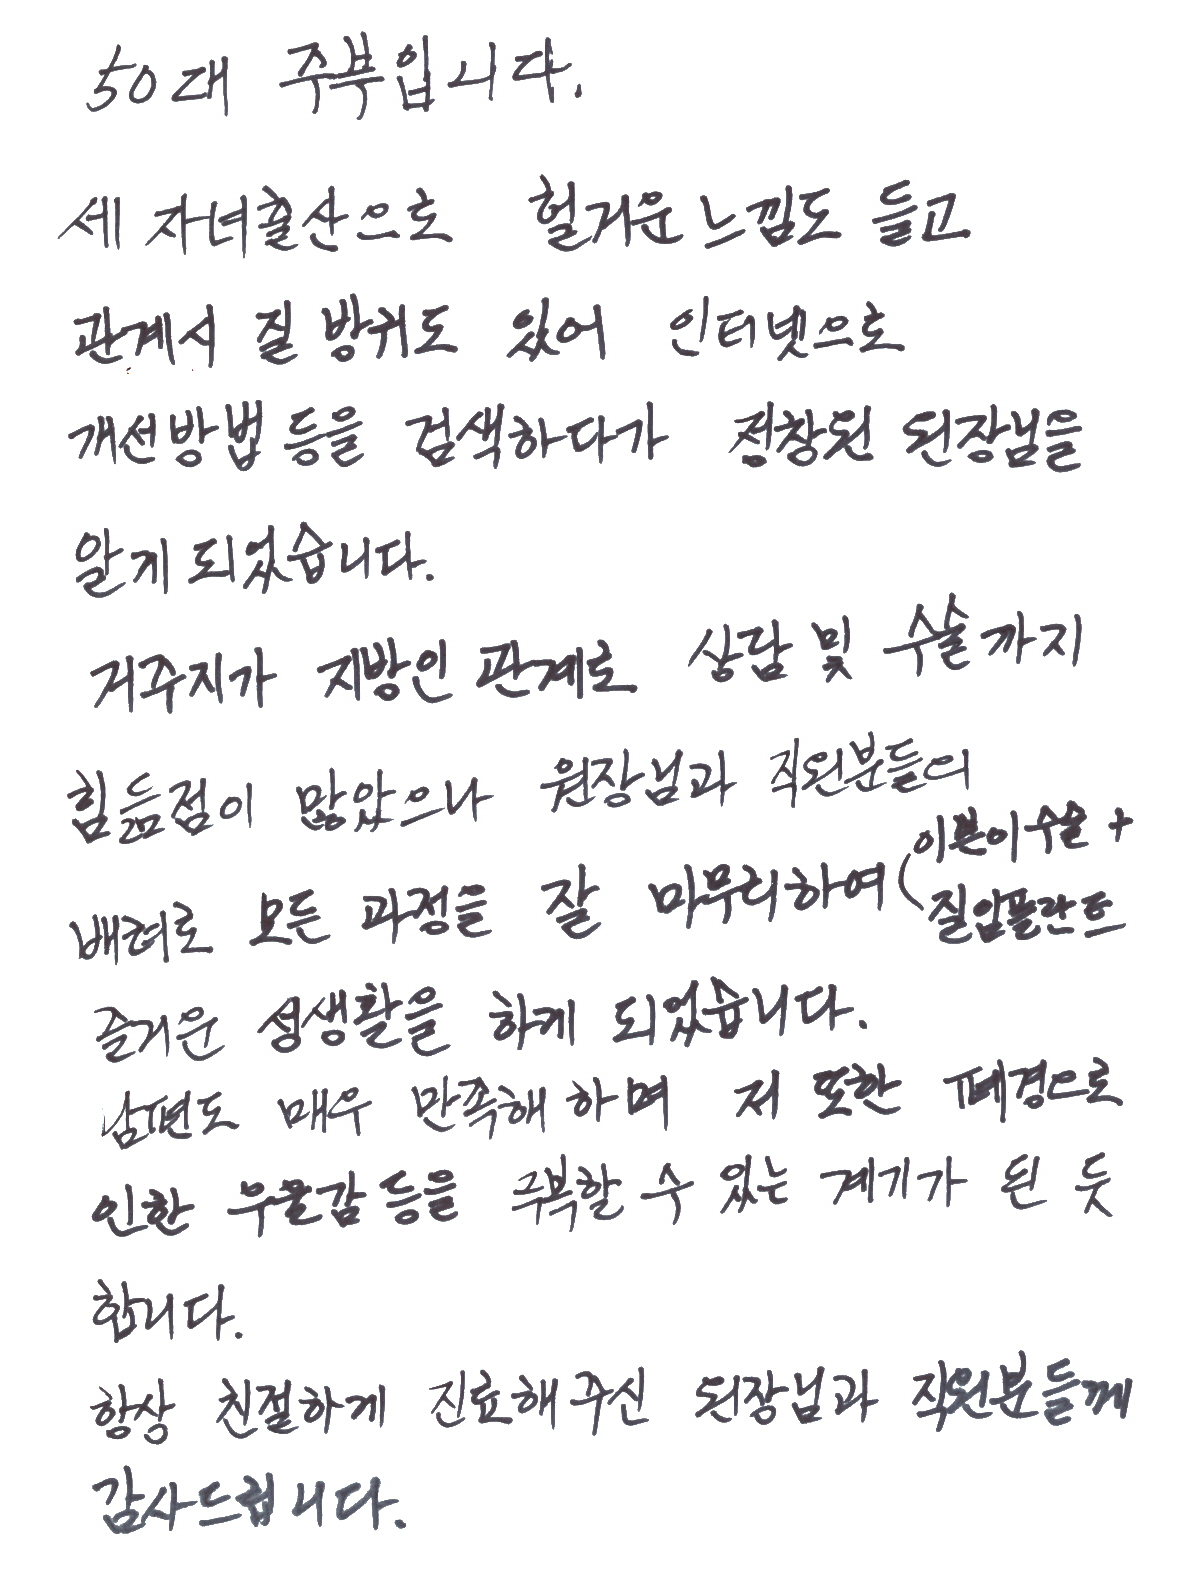 50대 주부입니다.
세 자녀출산으로 헐거운 느낌도 들고
관계시 질 방귀도 있어 인터넷으로
개선방법 등을 검색하다가 정창원 원장님을
알게 되었습니다.
거주지가 지방인 관계로 상담 및 수술까지
힘듦점이 많았으나 원장님과 직원분들의
배려로 모든 과정을 잘 마무리하여 (이쁜이수술 +
질임플란트
즐거운 성생활을 하게 되었습니다.
남편도 매우 만족해 하며 저 또한 폐경으로
인한 우울감 등을 극복할 수 있는 계기가 된 듯
합니다.
항상 친절하게 진료해 주신 원장님과 직원분들께
감사드립니다.